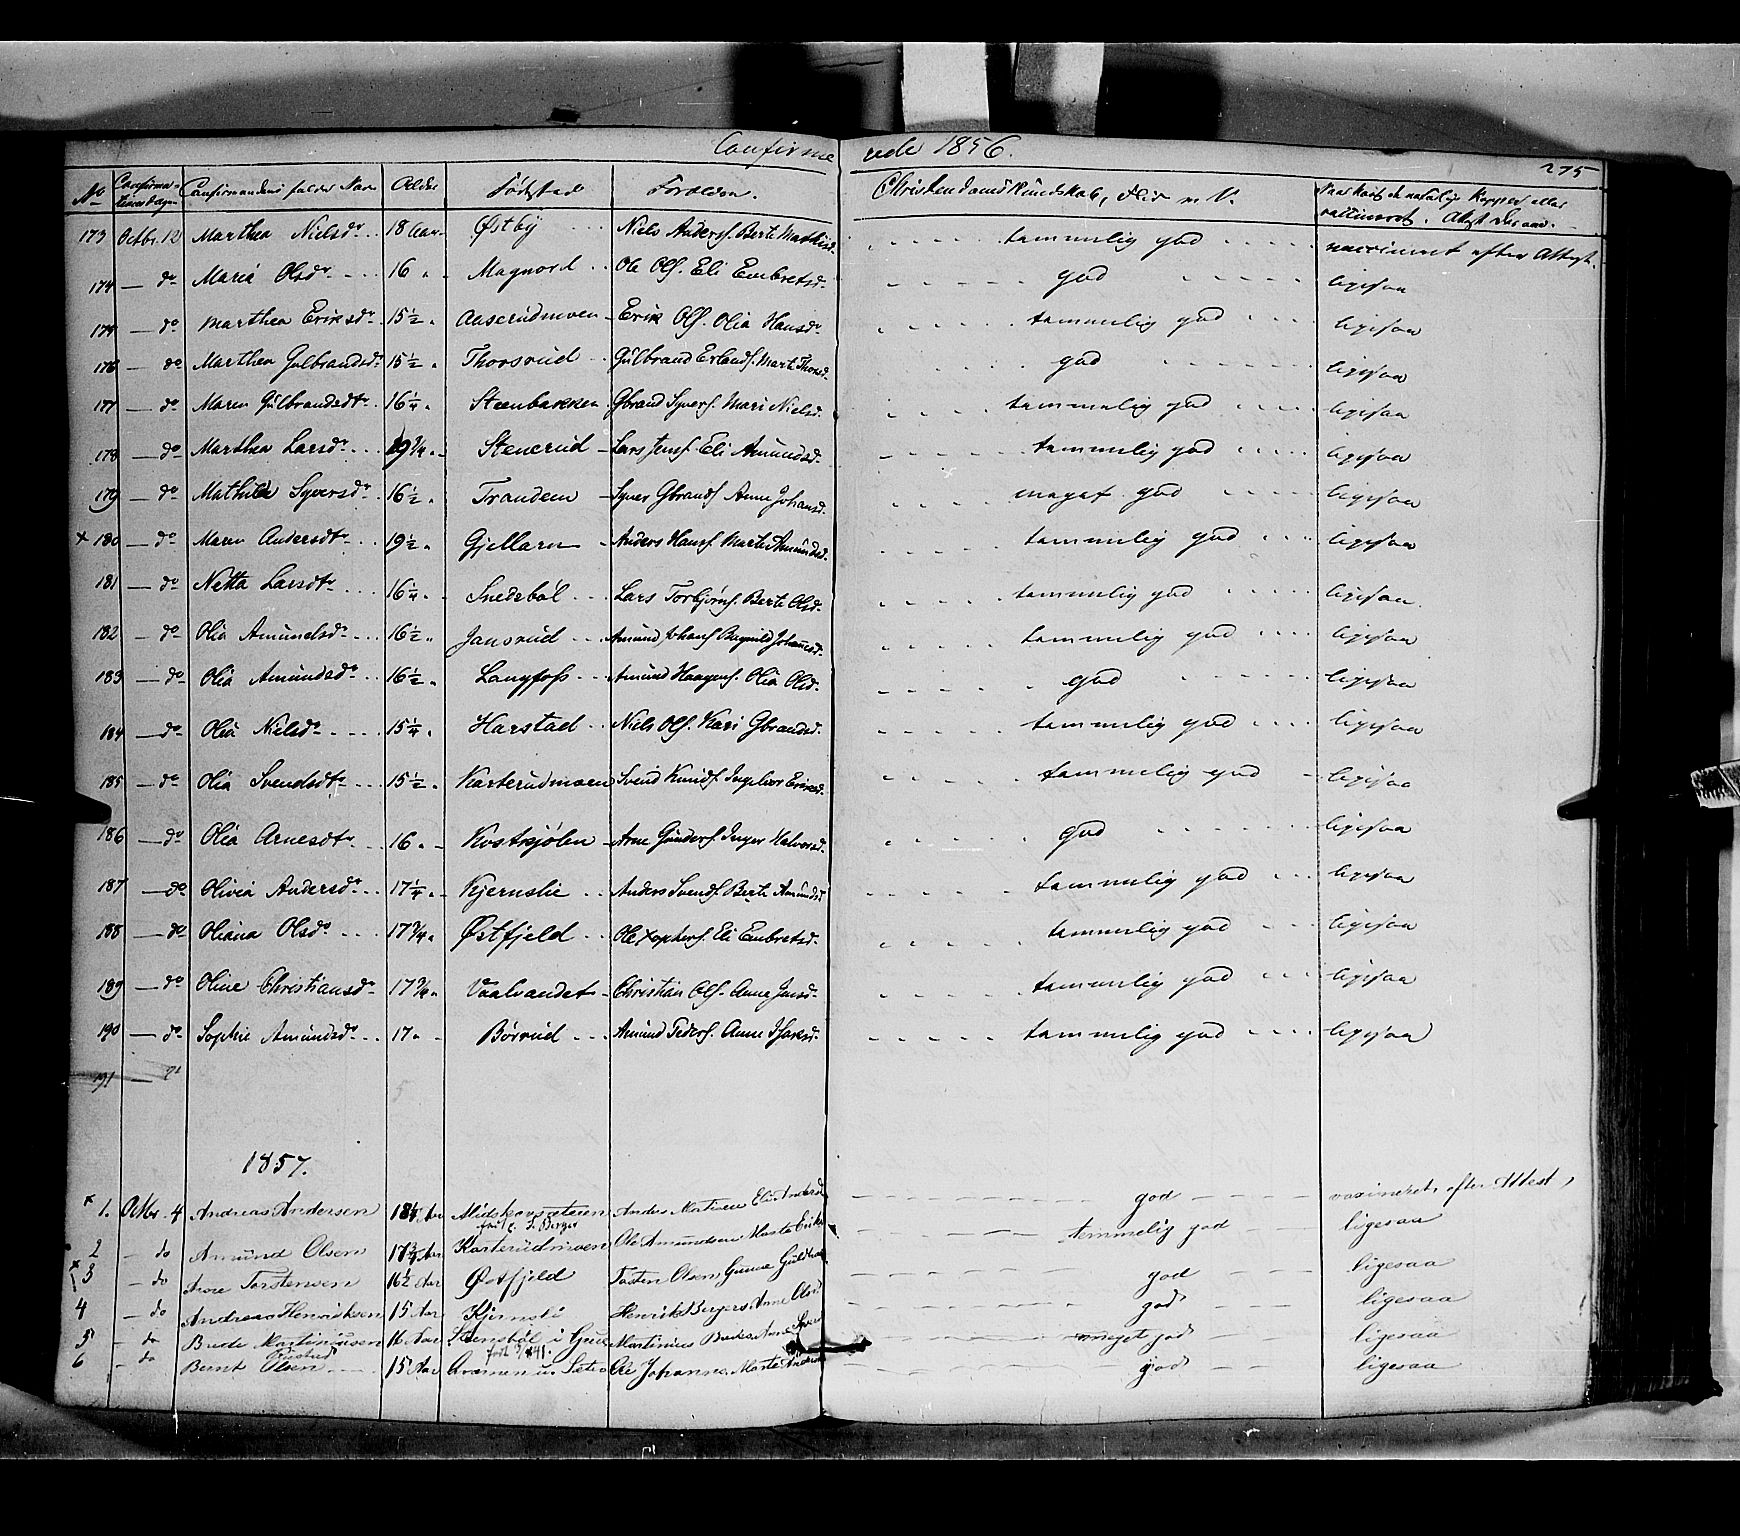 Confirmerede 1856.
275
No Confirmationens Dagn Confirmandens fulde Navn Alder Fødested Forældre. Christendomskundskab, Flid m. V. vaccineret.
173 Octbr. 12 Marthea Nielsdr. 18 Aar Østby Niels Anders. Berte Mathisd. tammelig god vaccineret efter Attest.
174 — do Maria Olsdr. 16 " Magnord Ole Ols. Eli Embretsd. god ligesaa
175 — do Marthea Eriksdr. 15½ " Aaserudmoen Erik Ols. Olia Hansdr. tammelig god ligesaa
176 — do Marthea Gulbrandsdr. 15½ " Thorsrud Gulbrand Erlands. Marte Thorsd. god ligesaa
177 — do Maren Gulbrandsdtr. 16¼ " Steenbakken Gbrand Syvers. Mari Nielsd. tammelig god ligesaa
178 — do Marthea Larsdr. 19¾ " Stenerud Lars Jens. Eli Amundsd. tammelig god ligesaa
179 — do Mathilda Syversdr. 16½ " Trandem Syver Gbrands. Anne Johansd. meget god ligesaa
x 180 — do Maren Andersdtr. 19½ " Gjellarn Anders Hans. Marte Amundsd. tammelig god ligesaa
181 — do Netta Larsdtr. 16¼ " Snedsbøl Lars Torbjørns. Berte Olsd. tammelig god ligesaa
182 — do Olia Amundsdr. 16½ " Jansrud Amund Johans. Bagnild Johannesd. tammelig god ligesaa
183 — do Olia Amundsdr. 16½ " Langfoss Amund Haagens. Olia Olsd. god ligesaa
184 — do Olia Nielsdr. 15¼ " Harstad Niels Ols. Kari Gbrandsd. tammelig god ligesaa
185 — do Olia Svendsdtr. 15½ " Karterudmoen Svend Knuds. Ingebor Eriksd. tammelig god ligesaa
186 — do Olia Arnesdtr. 16 " Kostkjølen Arne Gunders. Inger Halvorsd. god ligesaa
187 — do Olivia Andersdr. 17¼ " Kjernslie Anders Svends. Berte Amundsd tammelig god ligesaa
188 — do Oliana Olsdr. 17¾ " Østfjeld Ole Xophers. Eli Embretsd. tammelig god ligesaa
189 — do Oline Christiansdr. 17¾ " Vaalvandet Christian Ols. Anne Jensd. tammelig god ligesaa
190 — do Sophie Amundsdr. 17 " Børrud Amund Peders. Anne Isaksd. tammelig god ligesaa
191 — do
1857.
x 1. Octbr. 4 Andreas Andersen 18¼ Aar Midskovsæteren Anders Mortinsen Eli Andersd god vaxineret efter Attest
2 — do Amund Olsen 17¾ Aar Karterudmoen Ole Amundsen Marte Eriksd temmelig god ligesaa
x 3 — do Arne Torstensen 16½ Aar Østfjeld Tosten Olsen, Gunne god ligesaa
4 — do Andreas Henriksen 15 Aar Kjernsli Henrik Bergers. Anne Olsd god ligesaa
5 — do Brede Martinusen 16 Aar Stensbøl i Grue Martinius Bredes. Anne Syvers meget god ligesaa
6 — do Bernt Olsen 15 Aar Ole Johannes. Marte Andersd god ligesaa